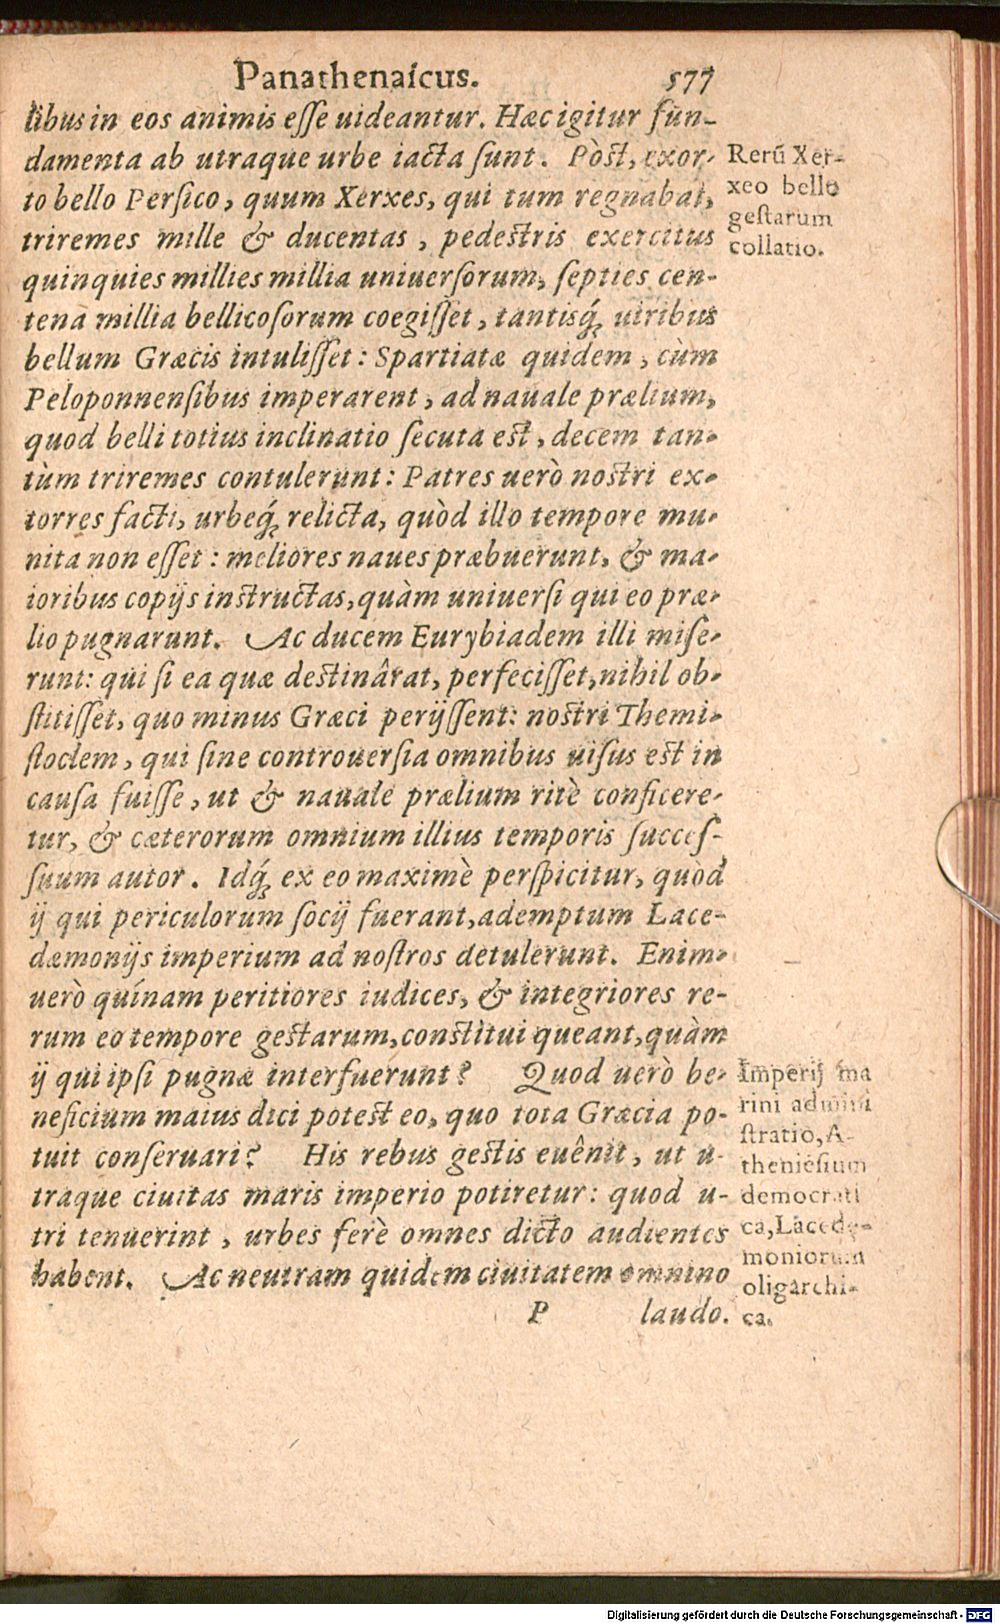 Panathenaicus. 577
libus in eos animis esse uideantur. Hæc igitur fun-
damenta ab utraque urbe iacta sunt. Pòst, exor-
to bello Persico, quum Xerxes, qui tum regnabat,
triremes mille & ducentas, pedestris exercitus
quinquies millies millia uniuersorum, septies cen-
tena millia bellicosorum coegisset, tantisq́; uiribus
bellum Græcis intulisset: Spartiatæ quidem, cùm
Peloponnensibus imperarent, ad nauale prælium,
quod belli totius inclinatio secuta est, decem tan-
tùm triremes contulerunt: Patres uerò nostri ex-
torres facti, urbeq́; relicta, quòd illo tempore mu-
nita non esset: meliores naues præbuerunt, & ma-
ioribus copijs instructas, quàm uniuersi qui eo præ-
lio pugnarunt. Ac ducem Eurybiadem illi mise-
runt: qui si ea quæ destinârat, perfecisset, nihil ob-
stitisset, quo minus Græci perijssent: nostri Themi-
stoclem, qui sine controuersia omnibus uisus est in
causa fuisse, ut & nauale prælium ritè conficere-
tur, & cæterorum omnium illius temporis succes-
suum autor. Idq́; ex eo maximè perspicitur, quòd
ij qui periculorum socij fuerant, ademptum Lace-
dæmonijs imperium ad nostros detulerunt. Enim-
uerò quínam peritiores iudices, & integriores re-
rum eo tempore gestarum, constitui queant, quàm
ij qui ipsi pugnæ interfuerunt? Quod uerò be-
neficium maius dici potest eo, quo tota Græcia po-
tuit conseruari? His rebus gestis euênit, ut u-
traque ciuitas maris imperio potiretur: quod u-
tri tenuerint, urbes ferè omnes dicto audientes
habent. Ac neutram quidem ciuitatem omnino
P laudo.
Rerū Xer-
xeo bello
gestarum
collatio.
Imperij ma
rini admini
stratio, A-
theniēsium
democrati
ca, Lacedę-
moniorum
oligarchi-
ca.
Digitalisierung gefördert durch die Deutsche Forschungsgemeinschaft - DFG